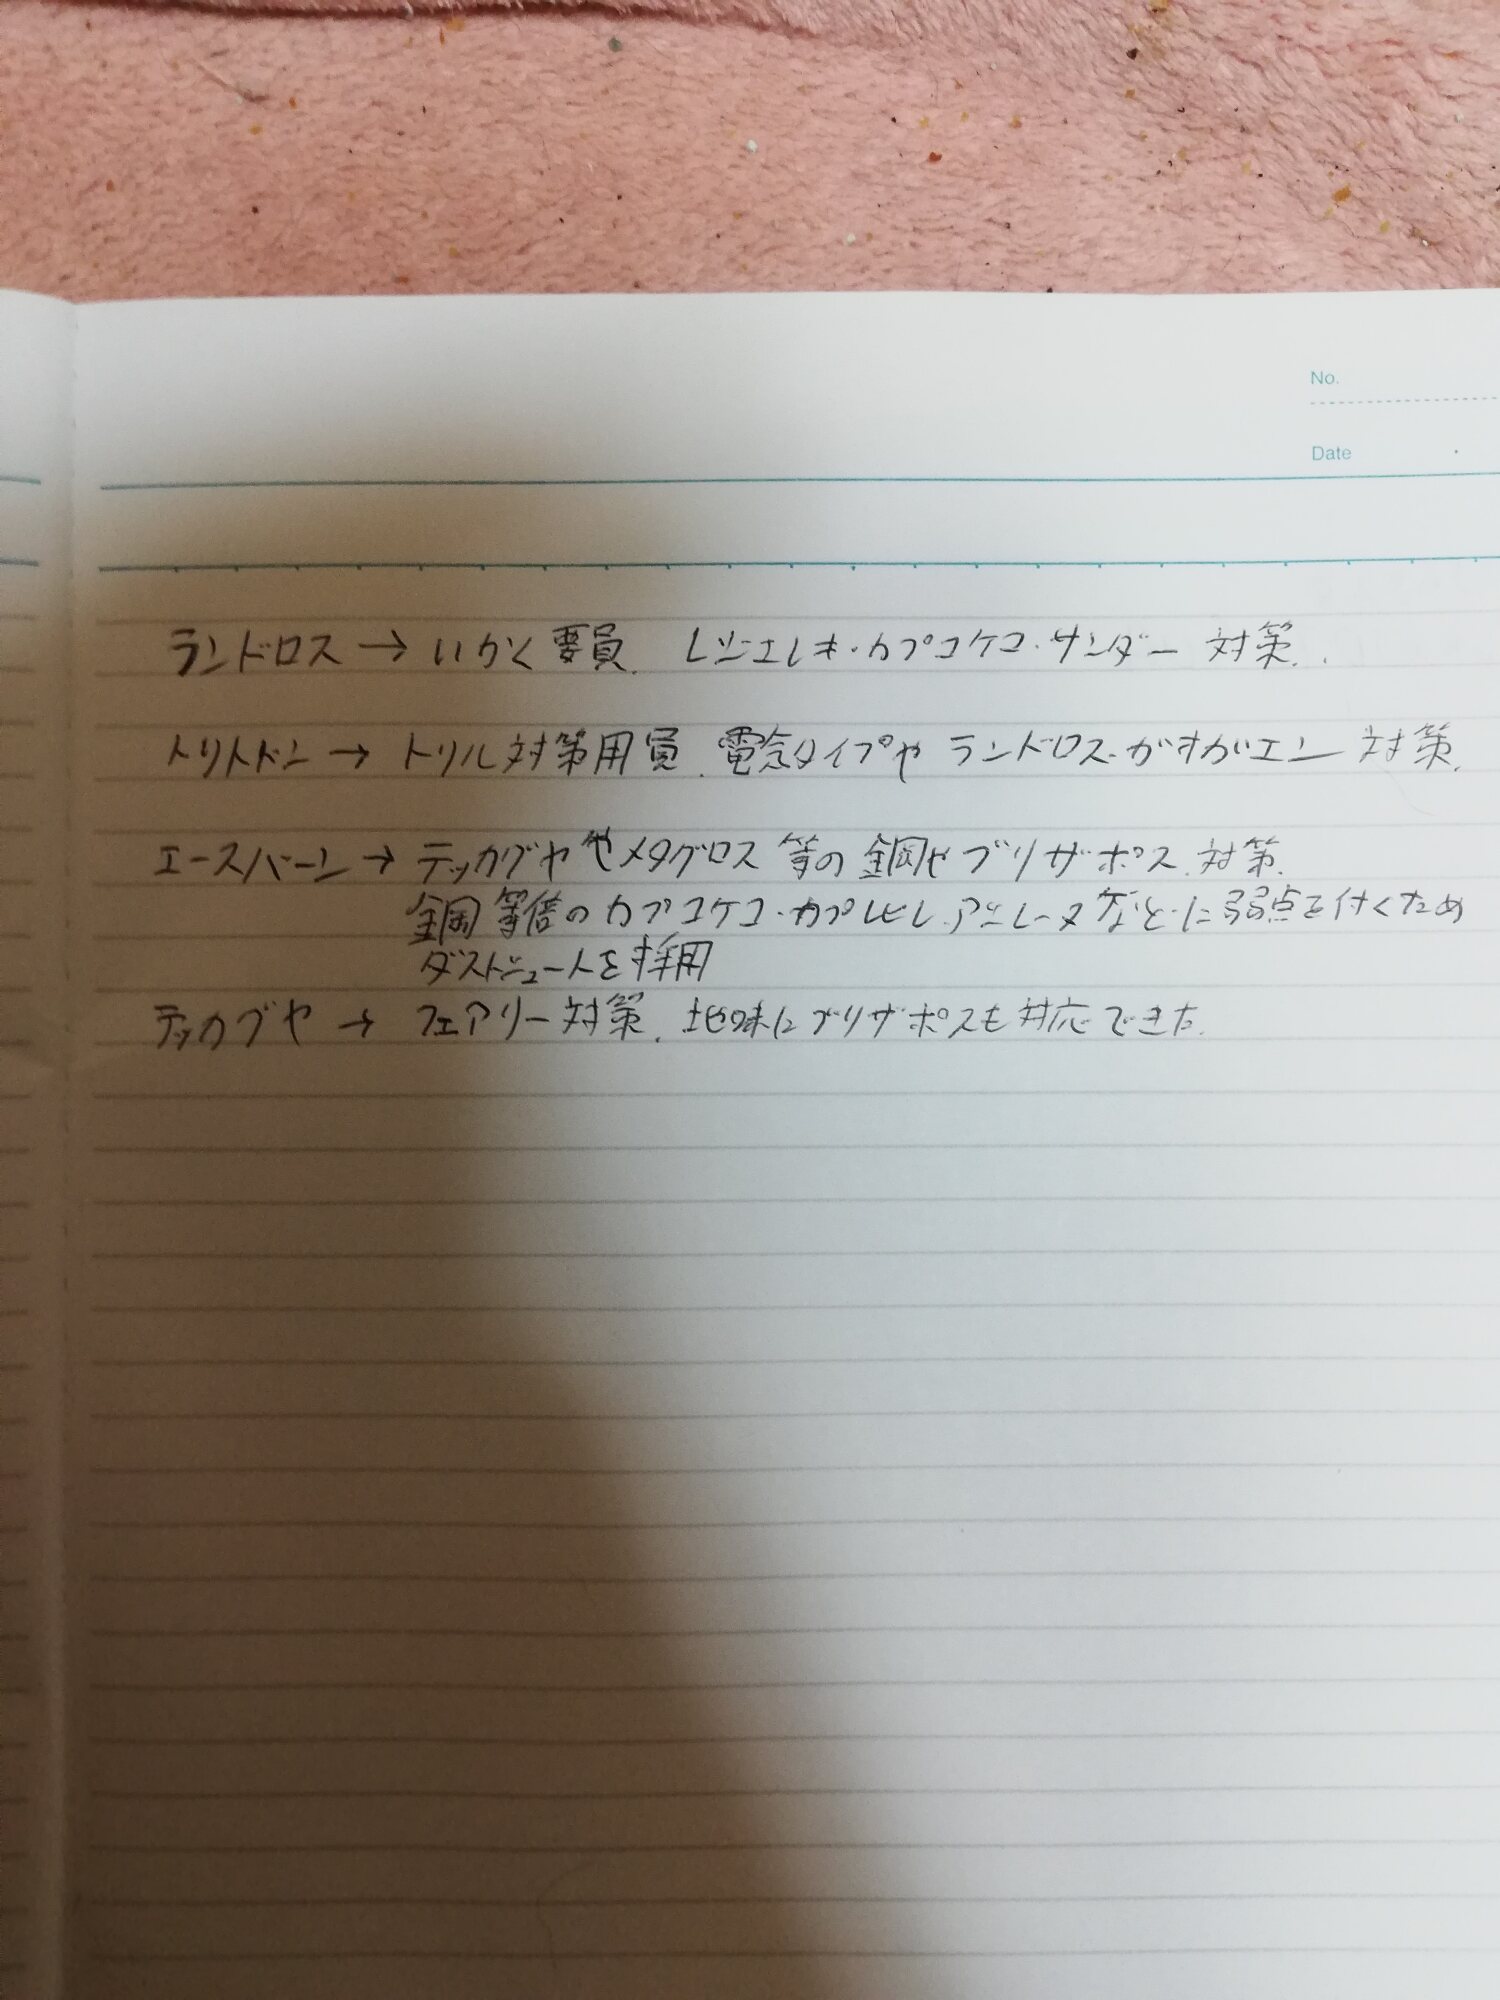 No.
Date
ランドロス → いかく要員. レジエレキ・カプコケコ・サンダー 対策.
トリトドン → トリル対策用員. 電気タイプや ランドロス・ガオガエン 対策.
エースバーン → テッカグヤやメタグロス 等の 鋼やブリザポス 対策.
鋼等倍のカプコケコ・カプレヒレ・アシレーヌなどに弱点を付くため
ダストシュートを採用
テッカグヤ → フェアリー対策. 地味にブリザポスも対応できた.